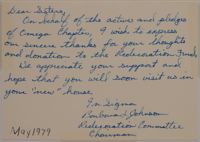 Dear Sisters,
On behalf of the actives and pledges
of Omega Chapter, I wish to express
our sincere thanks for your thoughts
and donation to the Redecoration Fund.
We appreciate your support and
hope that you will soon visit us in
your "new" house.
In Sigma
Barbara Johnson
Redecoration Committee
Chairman
May 1979